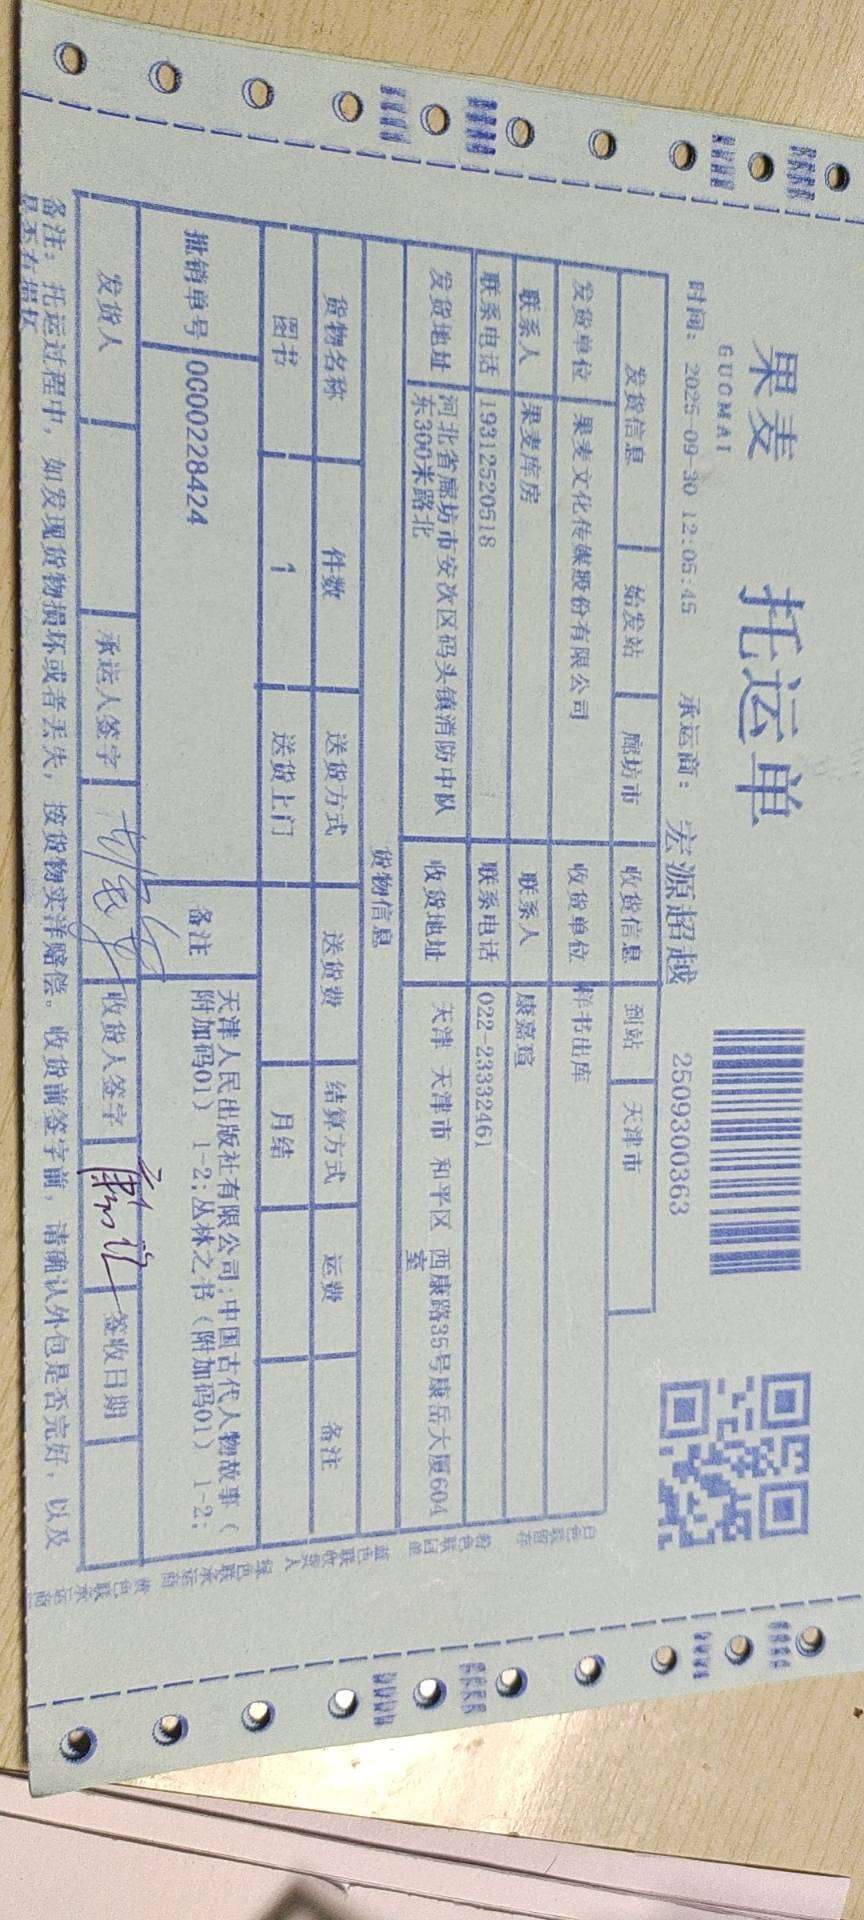 果麦
GUOMAI
托运单
2509300363
时间: 2025-09-30 12:05:45 承运商: 宏源超越
发货信息 始发站 廊坊市 收货信息 到站 天津市
发货单位 果麦文化传媒股份有限公司 收货单位 样书出库
联系人 果麦库房 联系人 康嘉瑄
联系电话 19312520518 联系电话 022-23332461
发货地址 河北省廊坊市安次区码头镇消防中队
东300米路北
收货地址 天津 天津市 和平区 西康路35号康岳大厦604
室
货物信息
货物名称 件数 送货方式 送货费 结算方式 运费 备注
图书 1 送货上门 月结
批销单号 0000228424 备注 天津人民出版社有限公司:中国古代人物故事(
附加码01) 1-2:丛林之书(附加码01) 1-2:
发货人 承运人签字 收货人签字 签收日期
备注: 托运过程中, 如发现货物损坏或者丢失, 按货物实洋赔偿。收货前签字前, 请确认外包是否完好, 以及
是否有损坏
白色联留存
粉色联回单
蓝色联收货人
绿色联承运商
黄色联承运商